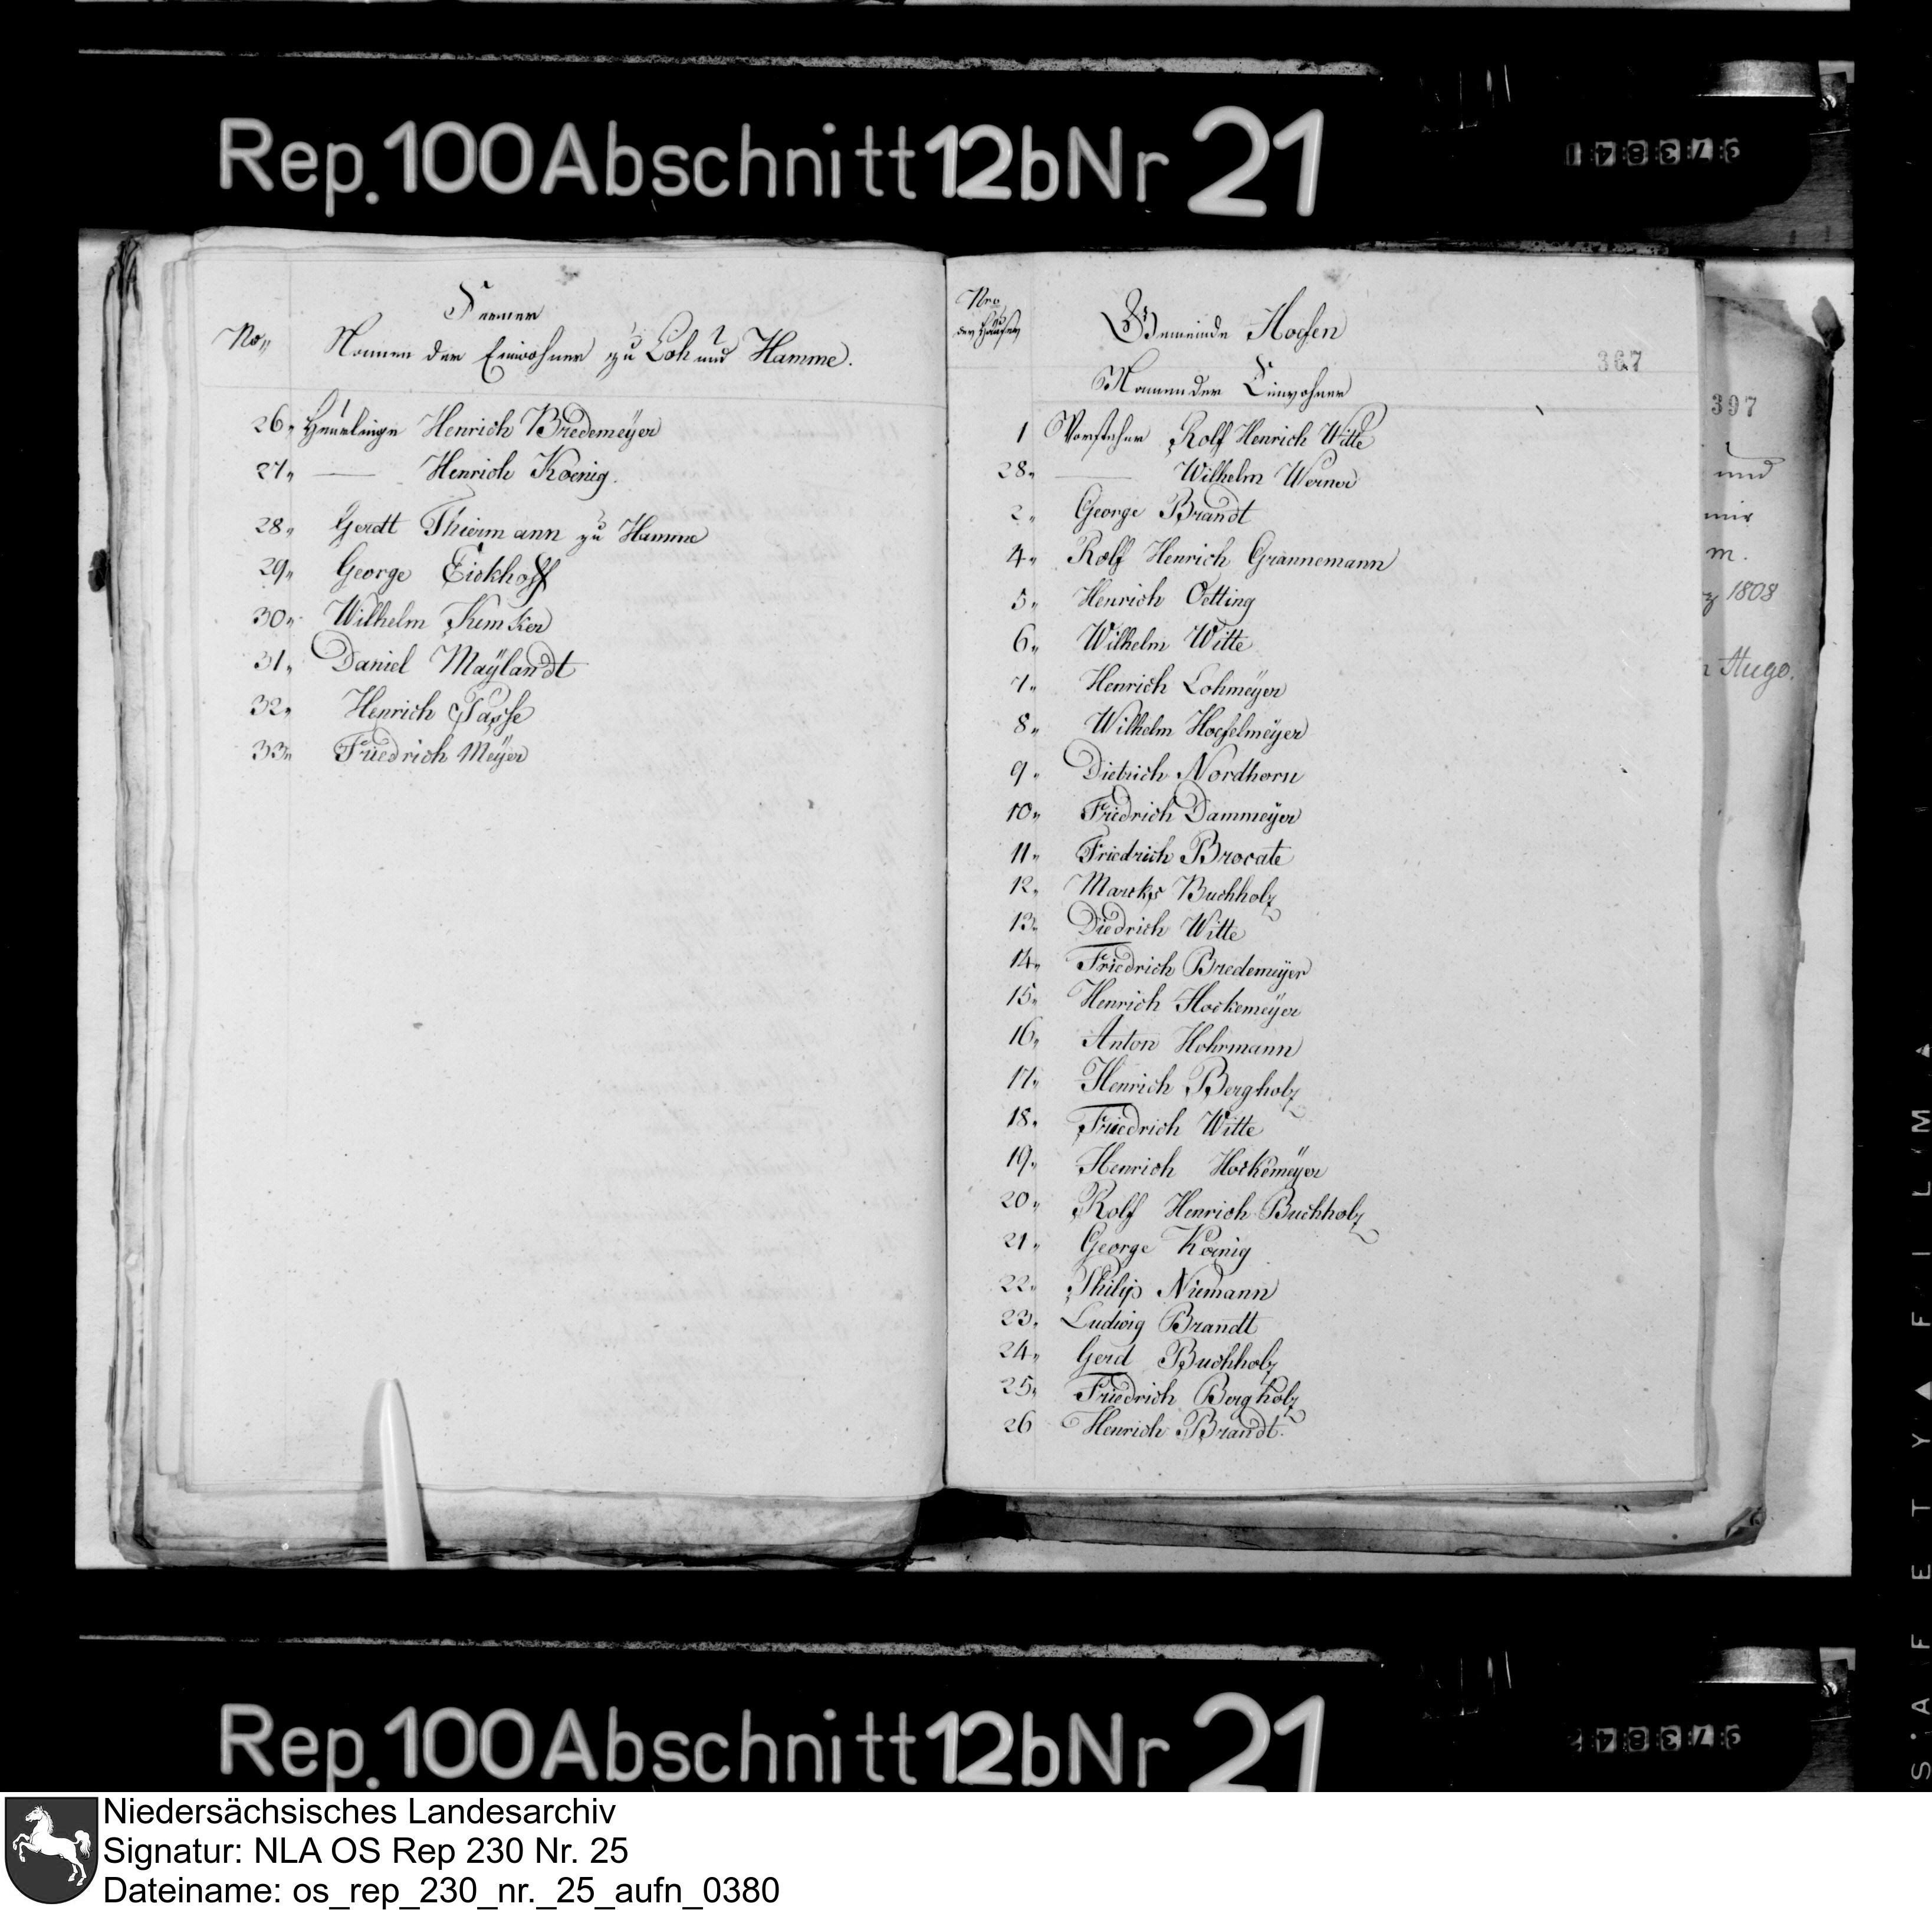 Rep. 100 Abschnitt 12b Nr 21
Ferner
No,, Namen der Einwohner zu Loh und Hamme.
26,, Heuerlinge Henrich Bredemeÿer
27,, — Henrich Koenig.
28,, Gerdt Thiermann zu Hamme
29,, George Eickhoff
30,, Wilhelm Kumker
31,, Daniel Maÿlandt
32,, Henrich Passe
33,, Friedrich Meÿer
Nro der Häuser
Gemeinde Hoesen
367
Namen der Einwohner
1 Vorsteher Rolf Henrich Witte
28,, — Wilhelm Werner
2,, George Brandt
4,, Rolf Henrich Grannemann
5,, Henrich Oetting
6,, Wilhelm Witte
7,, Henrich Lohmeÿer
8,, Wilhelm Hoeselmeÿer
9,, Dietrich Nordhorn
10,, Friedrich Dammeÿer
11,, Friedrich Brocate
12,, Marcks Buchholz
13,, Diedrich Witte
14,, Friedrich Bredemeÿer
15,, Henrich Hockemeÿer
16,, Anton Hohrmann
17,, Henrich Bergholz
18,, Friedrich Witte
19,, Henrich Hockemeÿer
20,, Rolf Henrich Buchholz
21,, George Koenig
22,, Philip Niemann
23,, Ludwig Brandt
24,, Gerd Buchholz
25,, Friedrich Bergholz
26 Henrich Brandt.
397
und
mir
m.
1808
Hugo.
SAFETY FILM
Rep. 100 Abschnitt 12b Nr 21
Niedersächsisches Landesarchiv
Signatur: NLA OS Rep 230 Nr. 25
Dateiname: os_rep_230_nr._25_aufn_0380